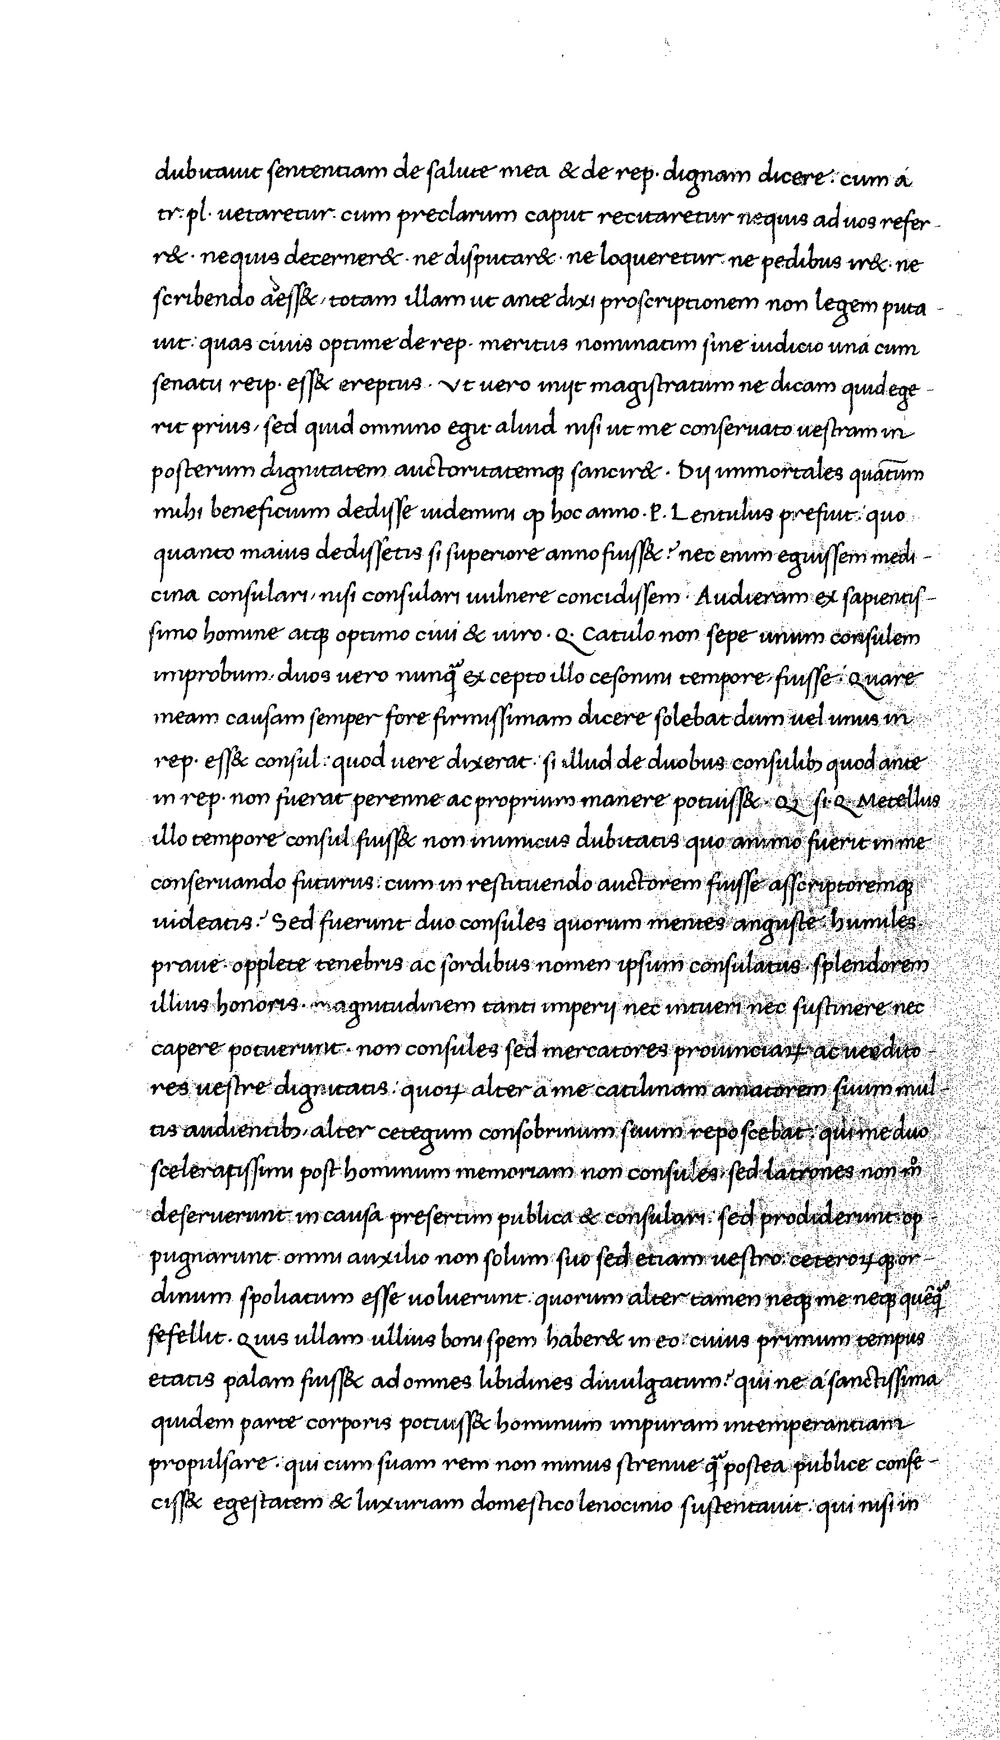 dubitauit sententiam de salute mea & de rep. dignam dicere: cum á
tr. pl. uetaretur. cum preclarum caput recitaretur nequis ad uos refer-
r&. nequis decerner&. ne disputar&. ne loqueretur. ne pedibus ir&. ne
scribendo adess&, totam illam ut ante dixi proscriptionem non legem puta-
uit: quas ciuis optime de rep. meritus nominatim sine iudicio uná cum
senatu reip. ess& ereptus. Vt uero iniit magistratum ne dicam quid ege-
rit prius, sed quid omnino egit aliud nisi ut me conseruato uestram in
posterum dignitatem auctoritatemq; sancir&. Dii immortales quātūm
mihi beneficium dedisse uidemini ꝙ hoc anno. P. Lentulus prefuit: quo
quanto maius dedissetis si superiore anno fuiss&? nec enim eguissem medi-
cina consulari, nisi consulari uulnere concidissem. Audieram ex sapientis-
simo homine atq; optimo ciui & uiro. Q. Catulo non sepe unum consulem
improbum, duos uero nunq̃ excepto illo cesonini tempore fuisse: Quare
meam causam semper fore firmissimam dicere solebat dum uel unus in
rep. ess& consul: quod uere dixerat. si illud de duobus consulibꝫ quod ante
in rep. non fuerat perenne ac proprium manere potuiss&. Qꝫ si Q. Metellus
illo tempore consul fuiss& non inimicus dubitatis quo animo fuerit in me
conseruando futurus: cum in restituendo auctorem fuisse asscriptoremq;
uideatis? Sed fuerunt duo consules quorum mentes anguste humiles.
praue. opplete tenebris ac sordibus nomen ipsum consulatus. splendorem
illius honoris. magnitudinem tanti imperii nec intueri nec sustinere nec
capere potuerunt. non consules sed mercatores prouinciaꝝ ac uendito-
res uestre dignitatis: quoꝝ alter a me catilinam amatorem suum mul-
tis audientibꝫ, alter cetegum consobrinum suum reposcebat: qui me duo
sceleratissimi post hominum memoriam non consules, sed latrones non m̊
deseruerunt in causa presertim publica & consulari: sed prodiderunt. op-
pugnarunt. omni auxilio non solum suo sed etiam uestro. ceteroꝝq; or-
dinum spoliatum esse uoluerunt. quorum alter tamen neq; me neq; quēq̃
fefellit. Quis ullam ullius boni spem haber& in eo: cuius primum tempus
etatis palam fuiss& ad omnes libidines diuulgatum? qui ne á sanctissima
quidem parte corporis potuiss& hominum impuram intemperantiam
propulsare. qui cum suam rem non minus strenue q̃ postea publice confe-
ciss& egestatem & luxuriam domestico lenocinio sustentauit: qui nisi in